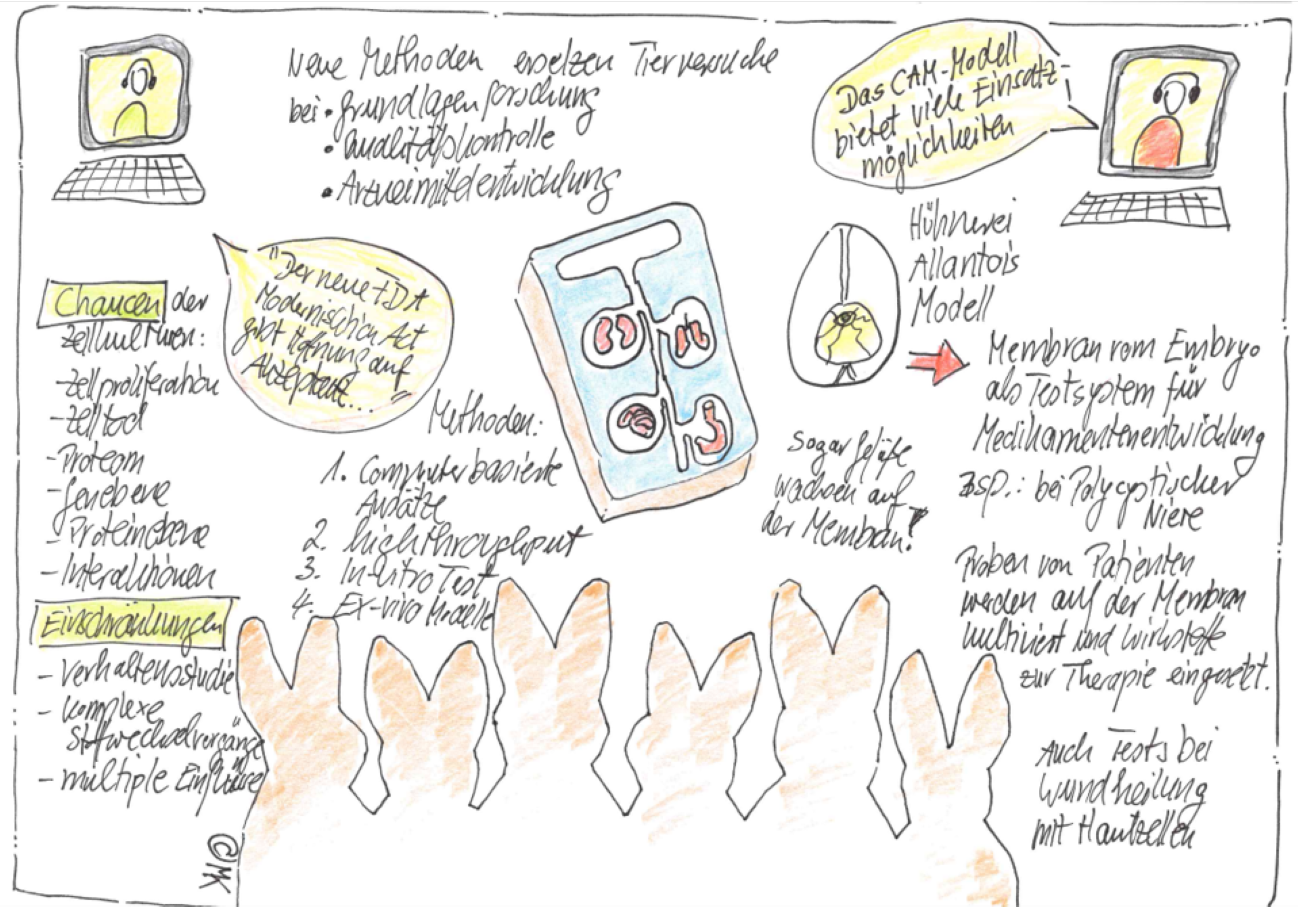 Neue Methoden ersetzen Tierversuche
bei • Grundlagenforschung
• Qualitätskontrolle
• Arzneimittelentwicklung
Das CAM-Modell
bietet viele Einsatz-
möglichkeiten
"Der neue FDA
Modernisation Act
gibt Hoffnung auf
Akzeptanz..."
Chancen der
Zellkulturen:
- Zellproliferation
- Zelltod
- Proteom
- Genebene
- Proteinebene
- Interaktionen
Einschränkungen
- Verhaltensstudie
- Komplexe
Stoffwechselvorgänge
- multiple Einflüsse
Methoden:
1. Computerbasierte
Ansätze
2. highthroughput
3. In-vitro Test
4. Ex-vivo Modelle
Hühnerei
Allantois
Modell
Membran vom Embryo
als Testsystem für
Medikamentenentwicklung
Bsp.: bei Polycystischer
Niere
Sogar Gefäße
wachsen auf
der Membran!
Proben von Patienten
werden auf der Membran
kultiviert und Wirkstoffe
zur Therapie eingesetzt.
Auch Tests bei
Wundheilung
mit Hautzellen
©MK